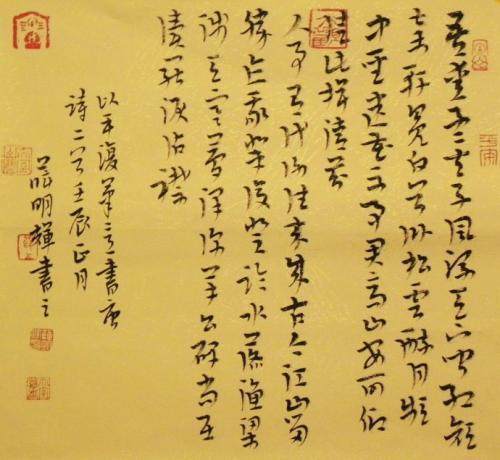 吾愛孟夫子風流天下聞紅顏
棄軒冕白首臥松雲醉月頻
中聖迷花不事君高山安可仰
徒此揖清芬
人事有代謝往來成古今江山留
勝跡我輩復登臨水落漁梁
淺天寒夢澤深羊公碑尚在
讀罷淚沾襟
以平復筆意書唐
詩二首壬辰正月
明輝書之